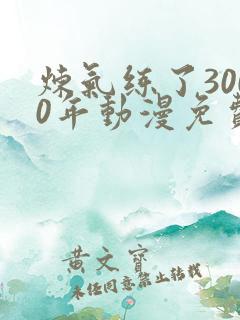 炼氣练了300
0年動漫免費
黄文寶
未经同意禁止转载